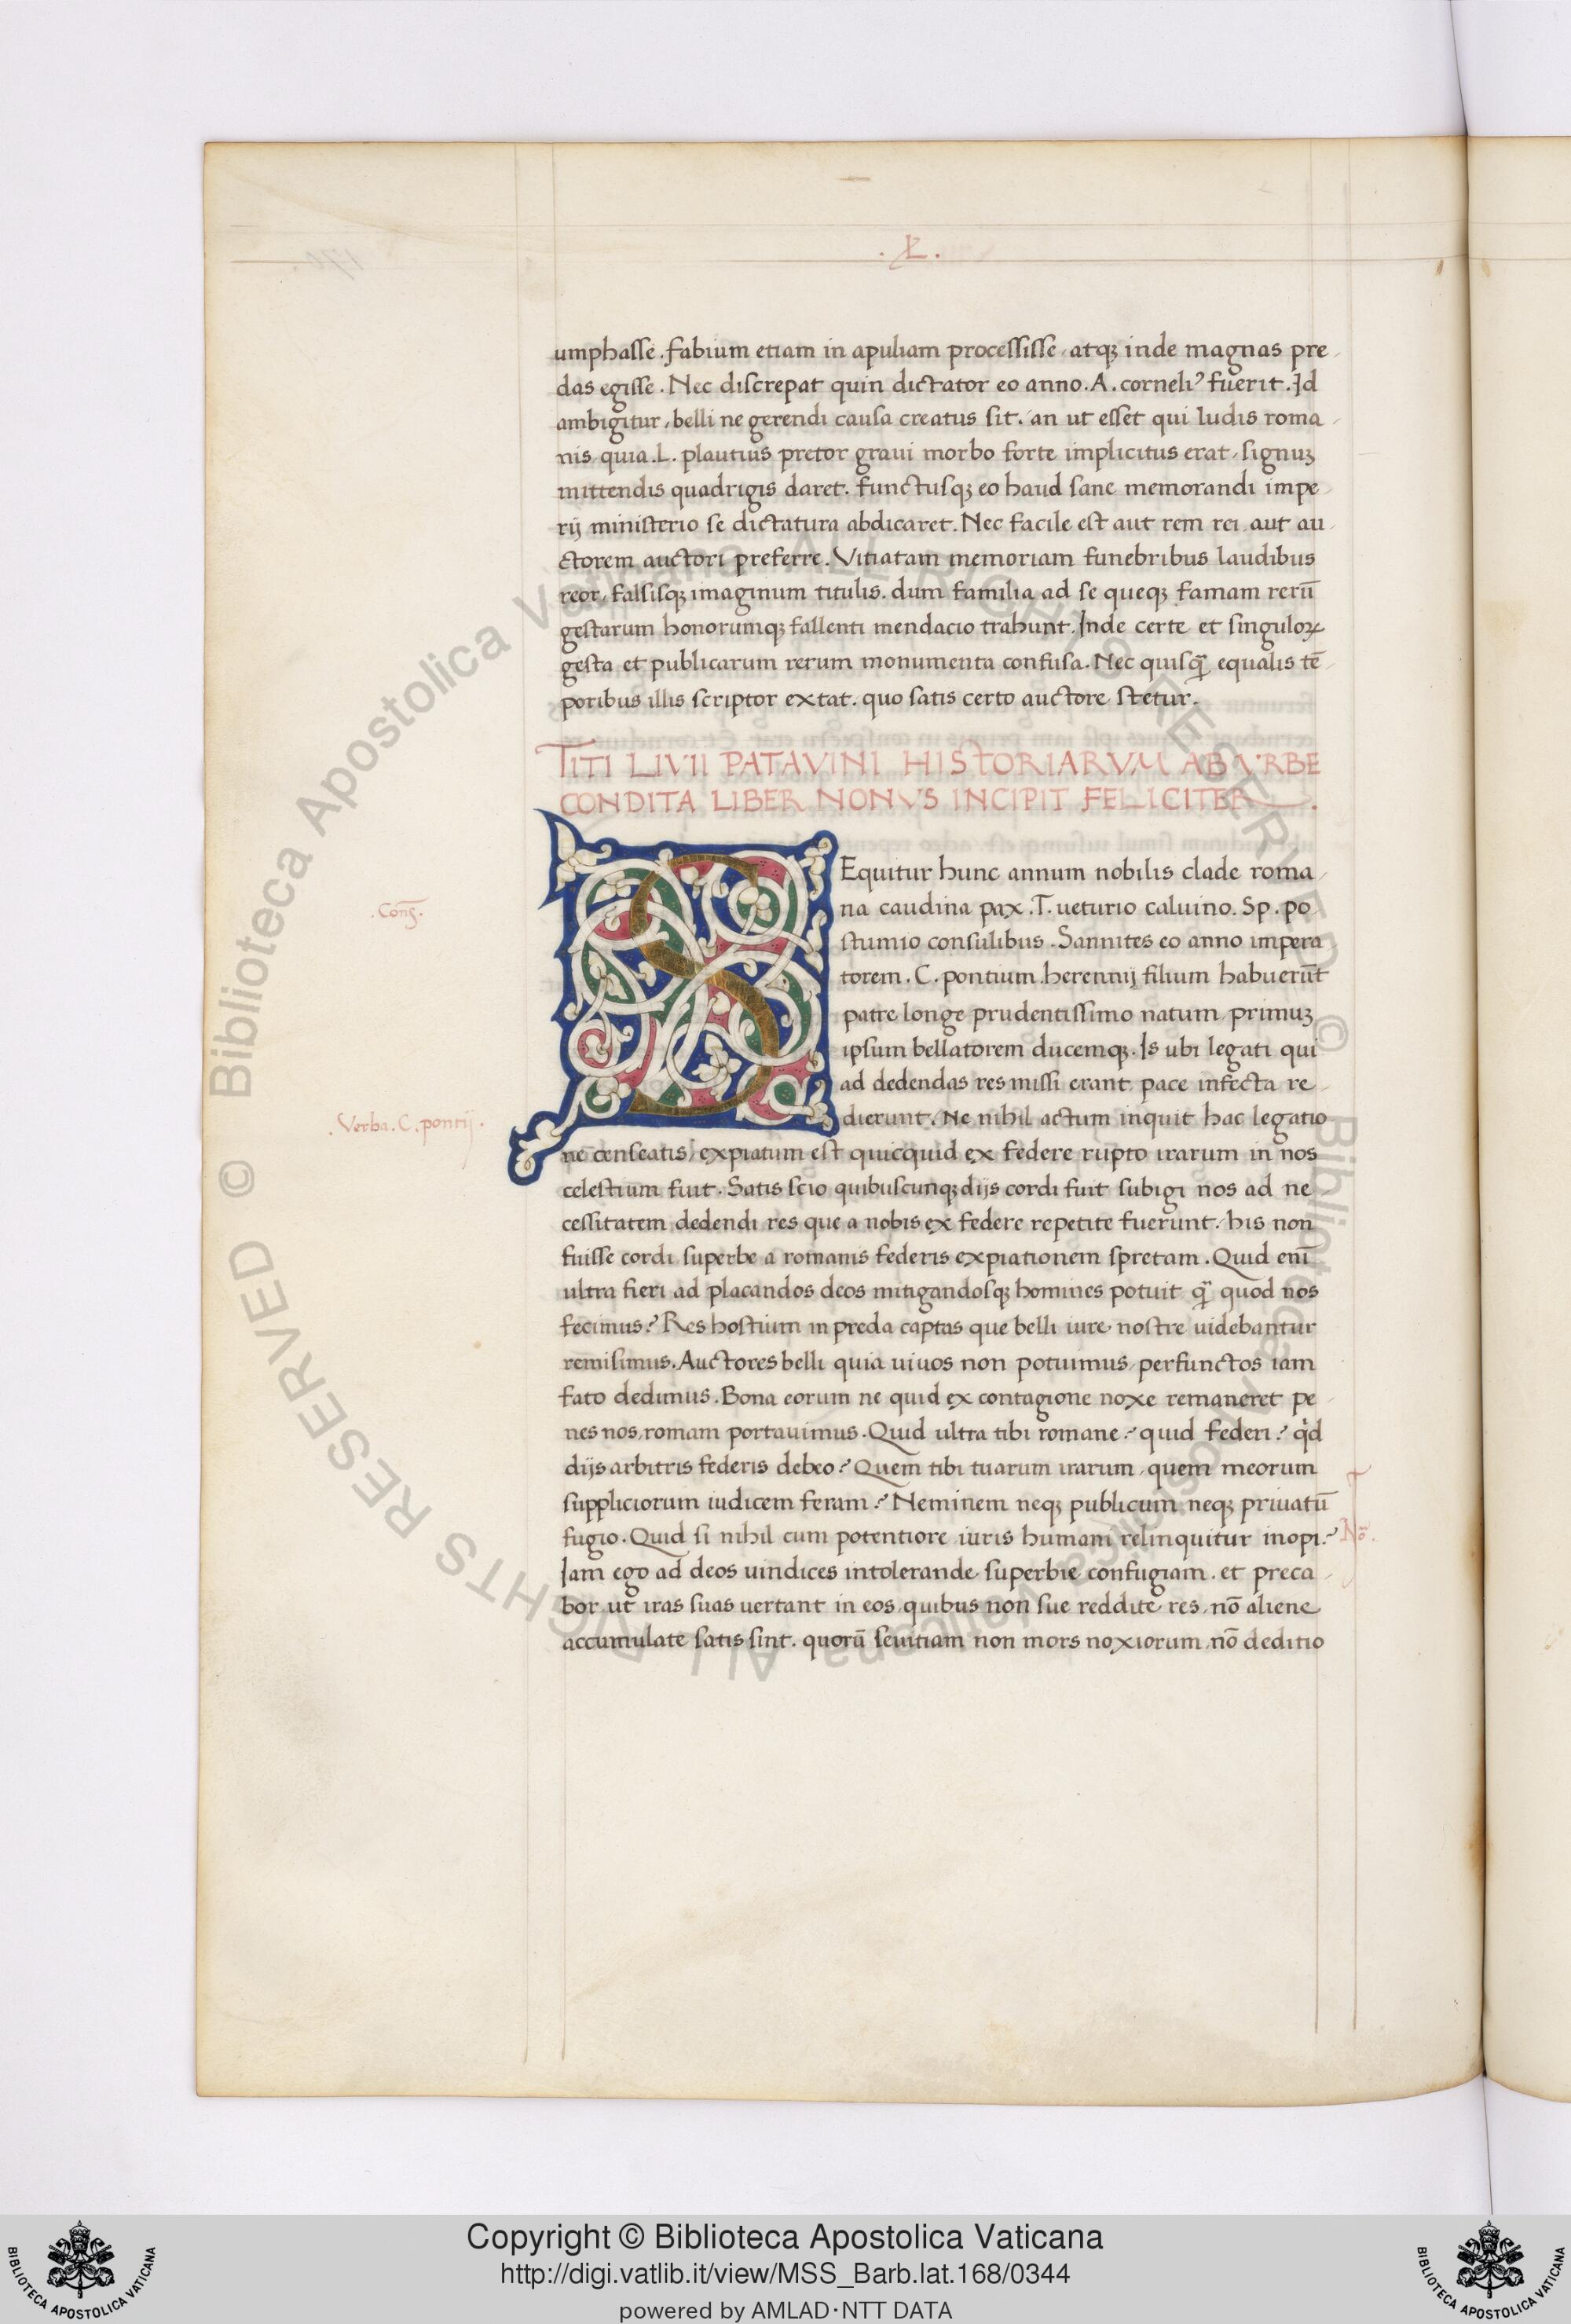 . L .
umphasse. fabium etiam in apuliam processisse, atqꝫ inde magnas pre
das egisse. Nec discrepat quin dictator eo anno. A. corneliꝰ fuerit. Id
ambigitur, belli ne gerendi causa creatus sit. an ut esset qui ludis roma
nis, quia. L. plautius pretor graui morbo forte implicitus erat, signuꝫ
mittendis quadrigis daret. functusqꝫ eo haud sane memorandi impe
rij ministerio se dictatura abdicaret. Nec facile est aut rem rei, aut au
ctorem auctori preferre. Vitiatam memoriam funebribus laudibus
reor, falsisqꝫ imaginum titulis. dum familia ad se queqꝫ famam rerū
gestarum honorumqꝫ fallenti mendacio trahunt. Inde certe et singuloꝝ
gesta et publicarum rerum monumenta confusa. Nec quisq̄ȝ equalis tē
poribus illis scriptor extat. quo satis certo auctore stetur.
TITI LIVII PATAVINI HISTORIARVM AB VRBE
CONDITA LIBER NONVS INCIPIT FELICITER.
SEquitur hunc annum nobilis clade roma
.Cons̄.
na caudina pax. T. ueturio caluino. Sp. po
stumio consulibus. Sannites eo anno impera
torem. C. pontium herennij filium habuerūt
patre longe prudentissimo natum, primuꝫ
ipsum bellatorem ducemqꝫ. Is ubi legati qui
ad dedendas res missi erant pace infecta re
.Verba. C. pontij.
dierunt. Ne nihil actum inquit hac legatio
ne censeatis, expiatum est quicquid ex federe rupto irarum in nos
celestium fuit. Satis scio quibuscunqꝫ dijs cordi fuit subigi nos ad ne
cessitatem dedendi res que a nobis ex federe repetite fuerunt, his non
fuisse cordi superbe a romanis federis expiationem spretam. Quid enī
ultra fieri ad placandos deos mitigandosqꝫ homines potuit q̄ȝ quod nos
fecimus? Res hostium in preda captas que belli iure nostre uidebantur
remisimus. Auctores belli quia uiuos non potuimus, perfunctos iam
fato dedimus. Bona eorum ne quid ex contagione noxe remaneret pe
nes nos, romam portauimus. Quid ultra tibi romane? quid federi? qid
dijs arbitris federis debeo? Quem tibi tuarum irarum, quem meorum
suppliciorum iudicem feram? Neminem neqꝫ publicum neqꝫ priuatū
fugio. Quid si nihil cum potentiore iuris humani relinquitur inopi?
No.
Iam ego ad deos uindices intolerande superbie confugiam. et preca
bor ut iras suas uertant in eos, quibus non sue reddite res, nō aliene
accumulate satis sint. quorū seuitiam non mors noxiorum, nō deditio
© Biblioteca Apostolica Vaticana ALL RIGHTS RESERVED
© Biblioteca Apostolica Vaticana ALL RIGHTS RESERVED
Copyright © Biblioteca Apostolica Vaticana
http://digi.vatlib.it/view/MSS_Barb.lat.168/0344
powered by AMLAD·NTT DATA
BIBLIOTECA APOSTOLICA VATICANA
BIBLIOTECA APOSTOLICA VATICANA